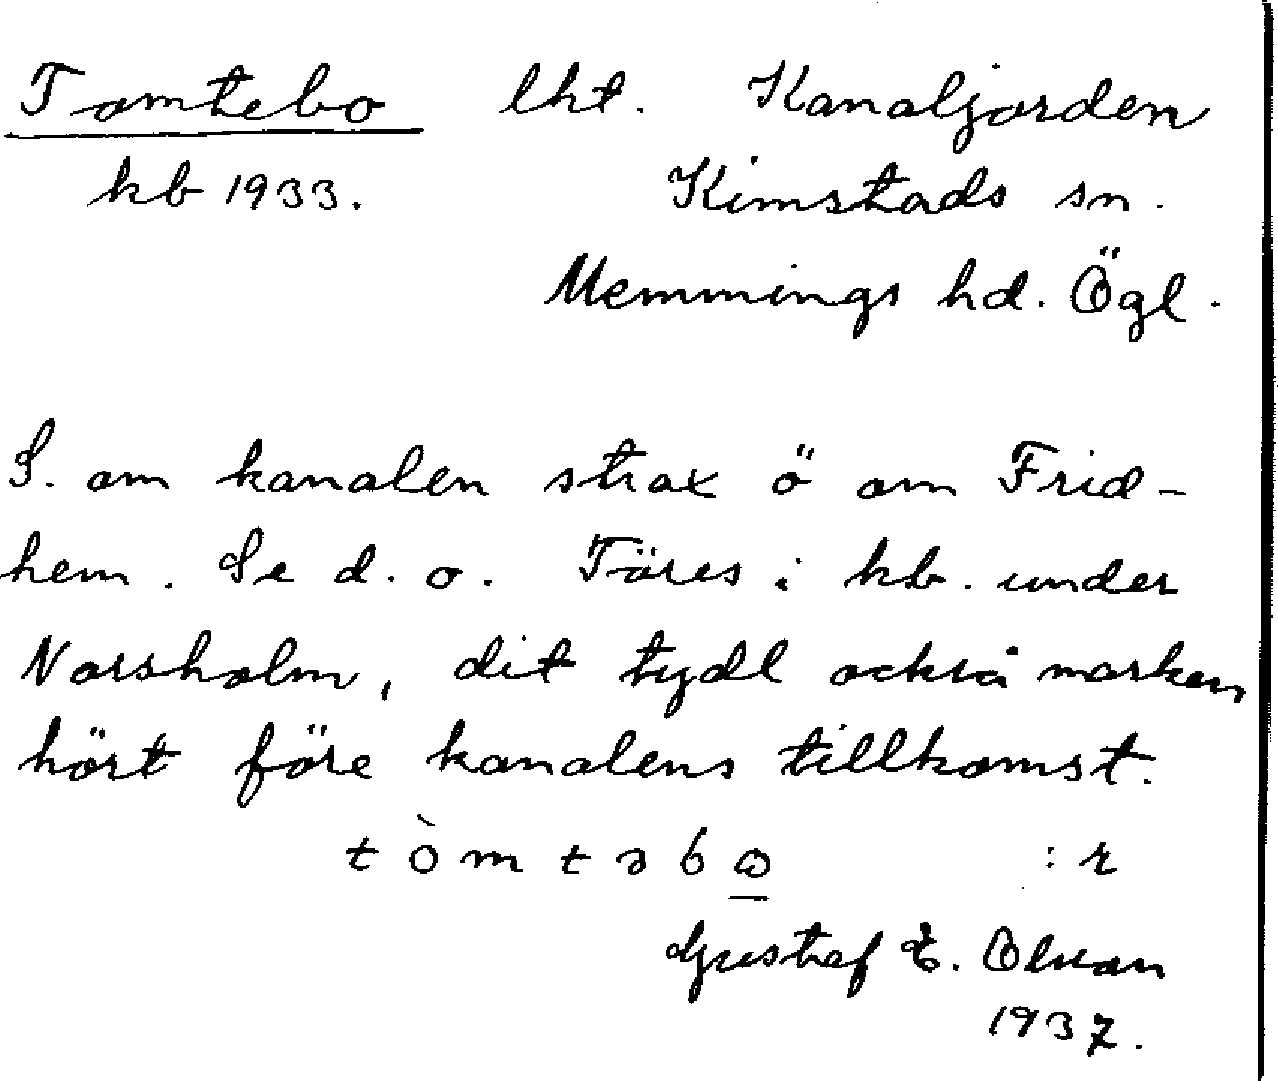 Tomtebo lht. Kanaljorden
kb 1933. Kimstads sn.
Memmings hd. Ögl.
S. om kanalen strax ö om Frid-
hem. Se d. o. Föres i kb. under
Norsholm, dit tydl också marken
hört före kanalens tillkomst.
t ò m t ə b ω : r
Gustaf E. Olsson
1937.